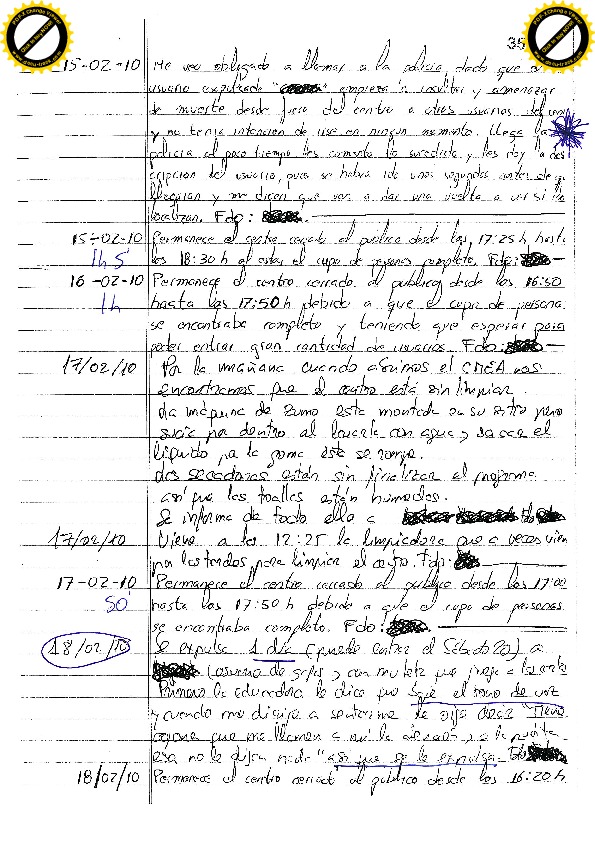 35
15-02-10 Me veo obligado a llamar a la policía, dado que
usuario expulsado empieza a insultar y amenazar
de muerte desde fuera del centro a otros usuarios del
y no tenía intención de irse en ningún momento. Llega la
policía al poco tiempo les comento lo sucedido y les doy la des
cripción del usuario, pues se había ido unos segundos antes de que
llegaran y me dicen que van a dar una vuelta a ver si lo
localizan. Fdo:
15-02-10 Permanece el centro cerrado al público desde las 17:25 h hasta
1h 5' las 18:30 h al estar el cupo de personas completo. Fdo:
16-02-10 Permanece el centro cerrado al público desde las 16:50
1h hasta las 17:50 h debido a que el cupo de personas
se encontraba completo y teniendo que esperar para
poder entrar gran cantidad de usuarios. Fdo:
17/02/10 Por la mañana cuando abrimos el CMEA nos
encontramos que el centro está sin limpiar
La máquina de zumo esta montada en su sitio pero
sucia por dentro al lavarla con agua y sacar el
líquido, ya la goma esta se rompe.
Las secadoras están sin finalizar el programa
así que las toallas están humedas.
Se informa de todo ello a
17/02/10 Viene a las 12:25 la limpiadora que a veces viene
por las tardes para limpiar el centro. Fdo:
17-02-10 Permanece el centro cerrado al público desde las 17:00
50' hasta las 17:50 h debido a que el cupo de personas
se encontraba completo. Fdo:
18/02/10 Se expulsa 1 día (puede entrar el Sábado 20) a
(usuario de gafas y con muleta que
Primero la educadora le dice que baje el tono de voz
y cuando me dirijo a sentarme le oigo decir "Tiene
cojones que me llamen a mí la atención y a la
esa no le dijera nada" así que se le expulsa. Fdo
18/02/10 Permanece el centro cerrado al público desde las 16:20 h